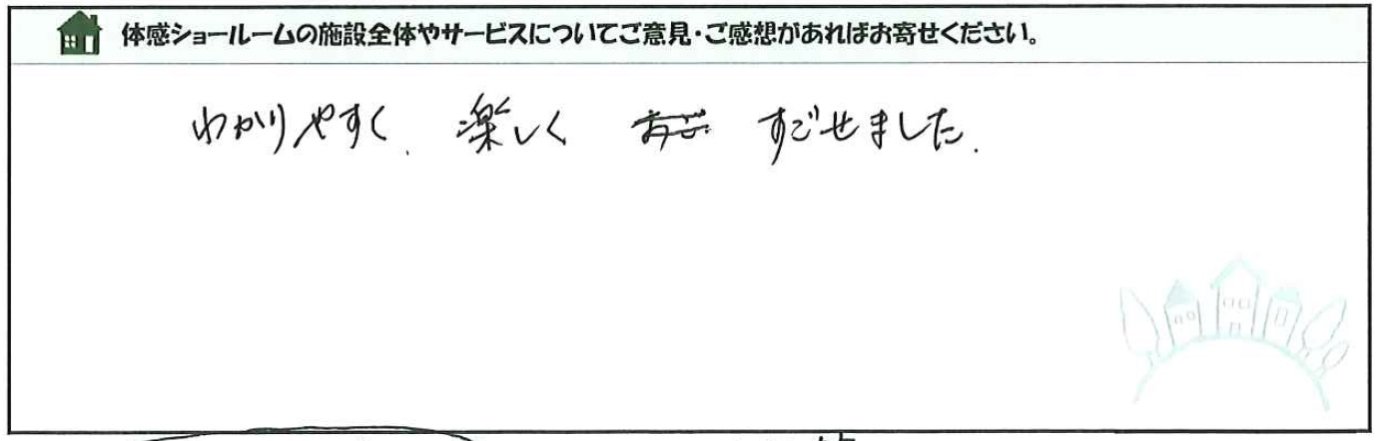 体感ショールームの施設全体やサービスについてご意見・ご感想があればお寄せください。
わかりやすく、楽しく すごせました.